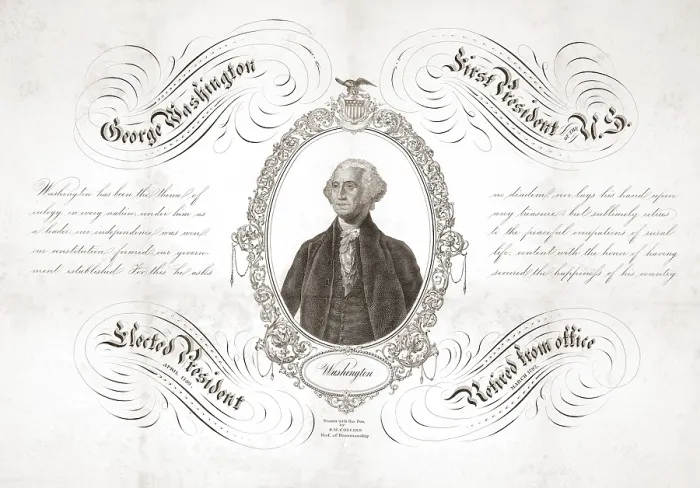 George Washington
First President of the U.S.
Washington has been the theme of
eulogy in every nation, under him as
a leader, our independence was won
our constitution framed, our govern-
ment established. For this he asks
no diadem, nor lays his hand upon
any treasure; but sublimely retires
to the peaceful occupations of rural
life, content with the honor of having
secured the happiness of his country
Elected President
APRIL 1789.
Retired from office
MARCH 1797.
Washington
Drawn with the Pen
by
Prof. of Penmanship